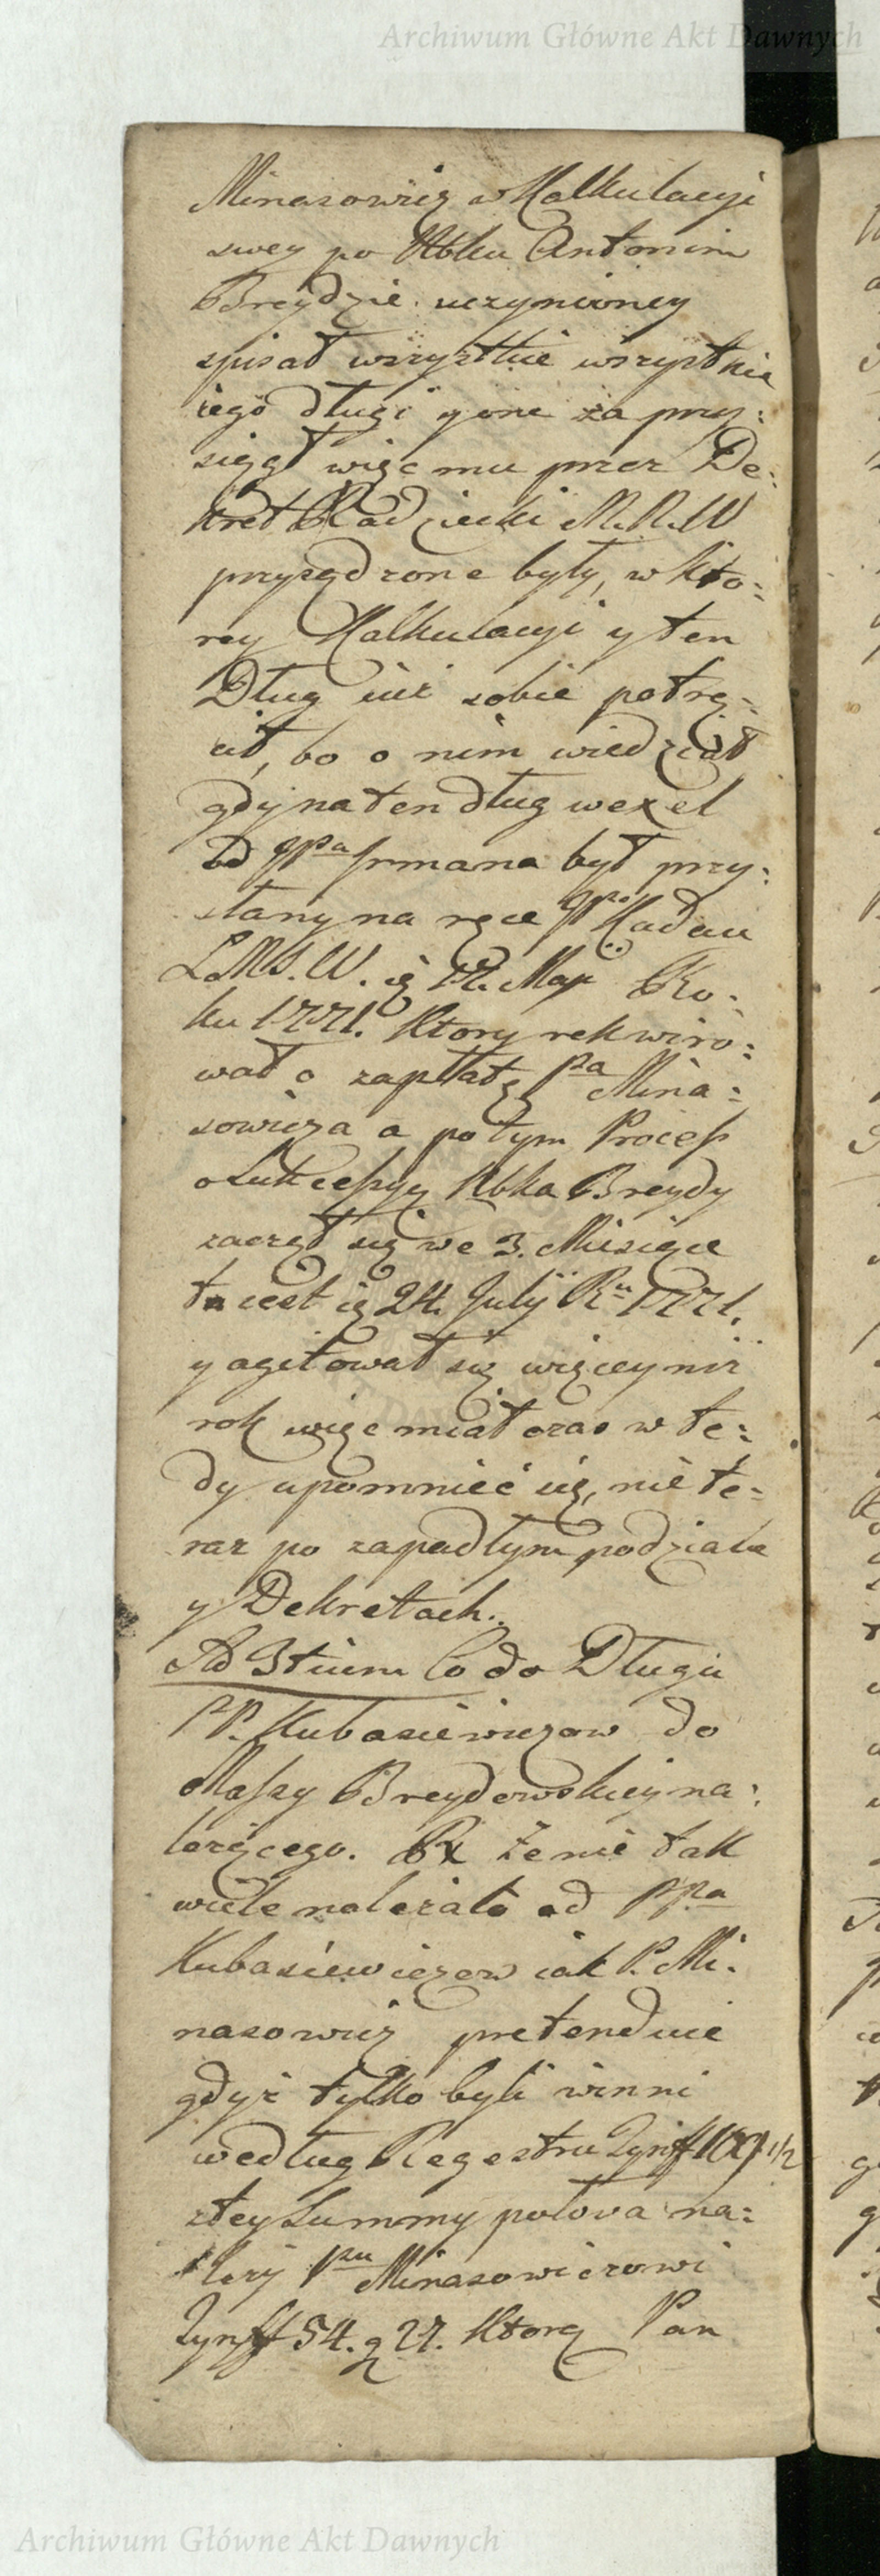 Archiwum Główne Akt Dawnych
Minasowicz w Kalkulacyi
swey po Xbku Antonim
Breydzie uczynioney
spisał wszystkie wszystkie
iego długi y one zaprzy:
siągł więc mu przez De:
kret Radziecki M.R.W
przysądzone były, w kto:
rey Kalkulacyi y ten
Dług iuż sobie potrą:
cił, bo o nim wiedział
gdy na ten dług wexel
od JPa Jrmana był przy:
słany na ręce JPa Kadau
L.M.S.W. ię 12. Maja Ro.
ku 1771. Ktory rekwiro:
wał o zapłatę Pa Mina:
sowicza a potym Process
o Sukcessyą Xbka Breydy
zaczął się we 3. Miesiące
to iest ię 24. Julij Ru 1771.
y agitował się więcey niż
rok więc miał czas w te:
dy upomnieć się, nie te:
raz po zapadłym podziale
y Dekretach.
Ad 3tium Co do Długu
PP. Kubasiewiczow do
Massy Breydowskiey na:
leżącego. Rx Że nie tak
wiele należało od PPa
Kubasiewiczow iak P. Mi.
nasowicz pretenduie
gdyż tylko byli winni
według Regestru Tynff 109 1/2
z tey Summy połowa na:
leży Pnu Minasowiczowi
Tynff 54. g 27. Ktorą Pan
Archiwum Główne Akt Dawnych